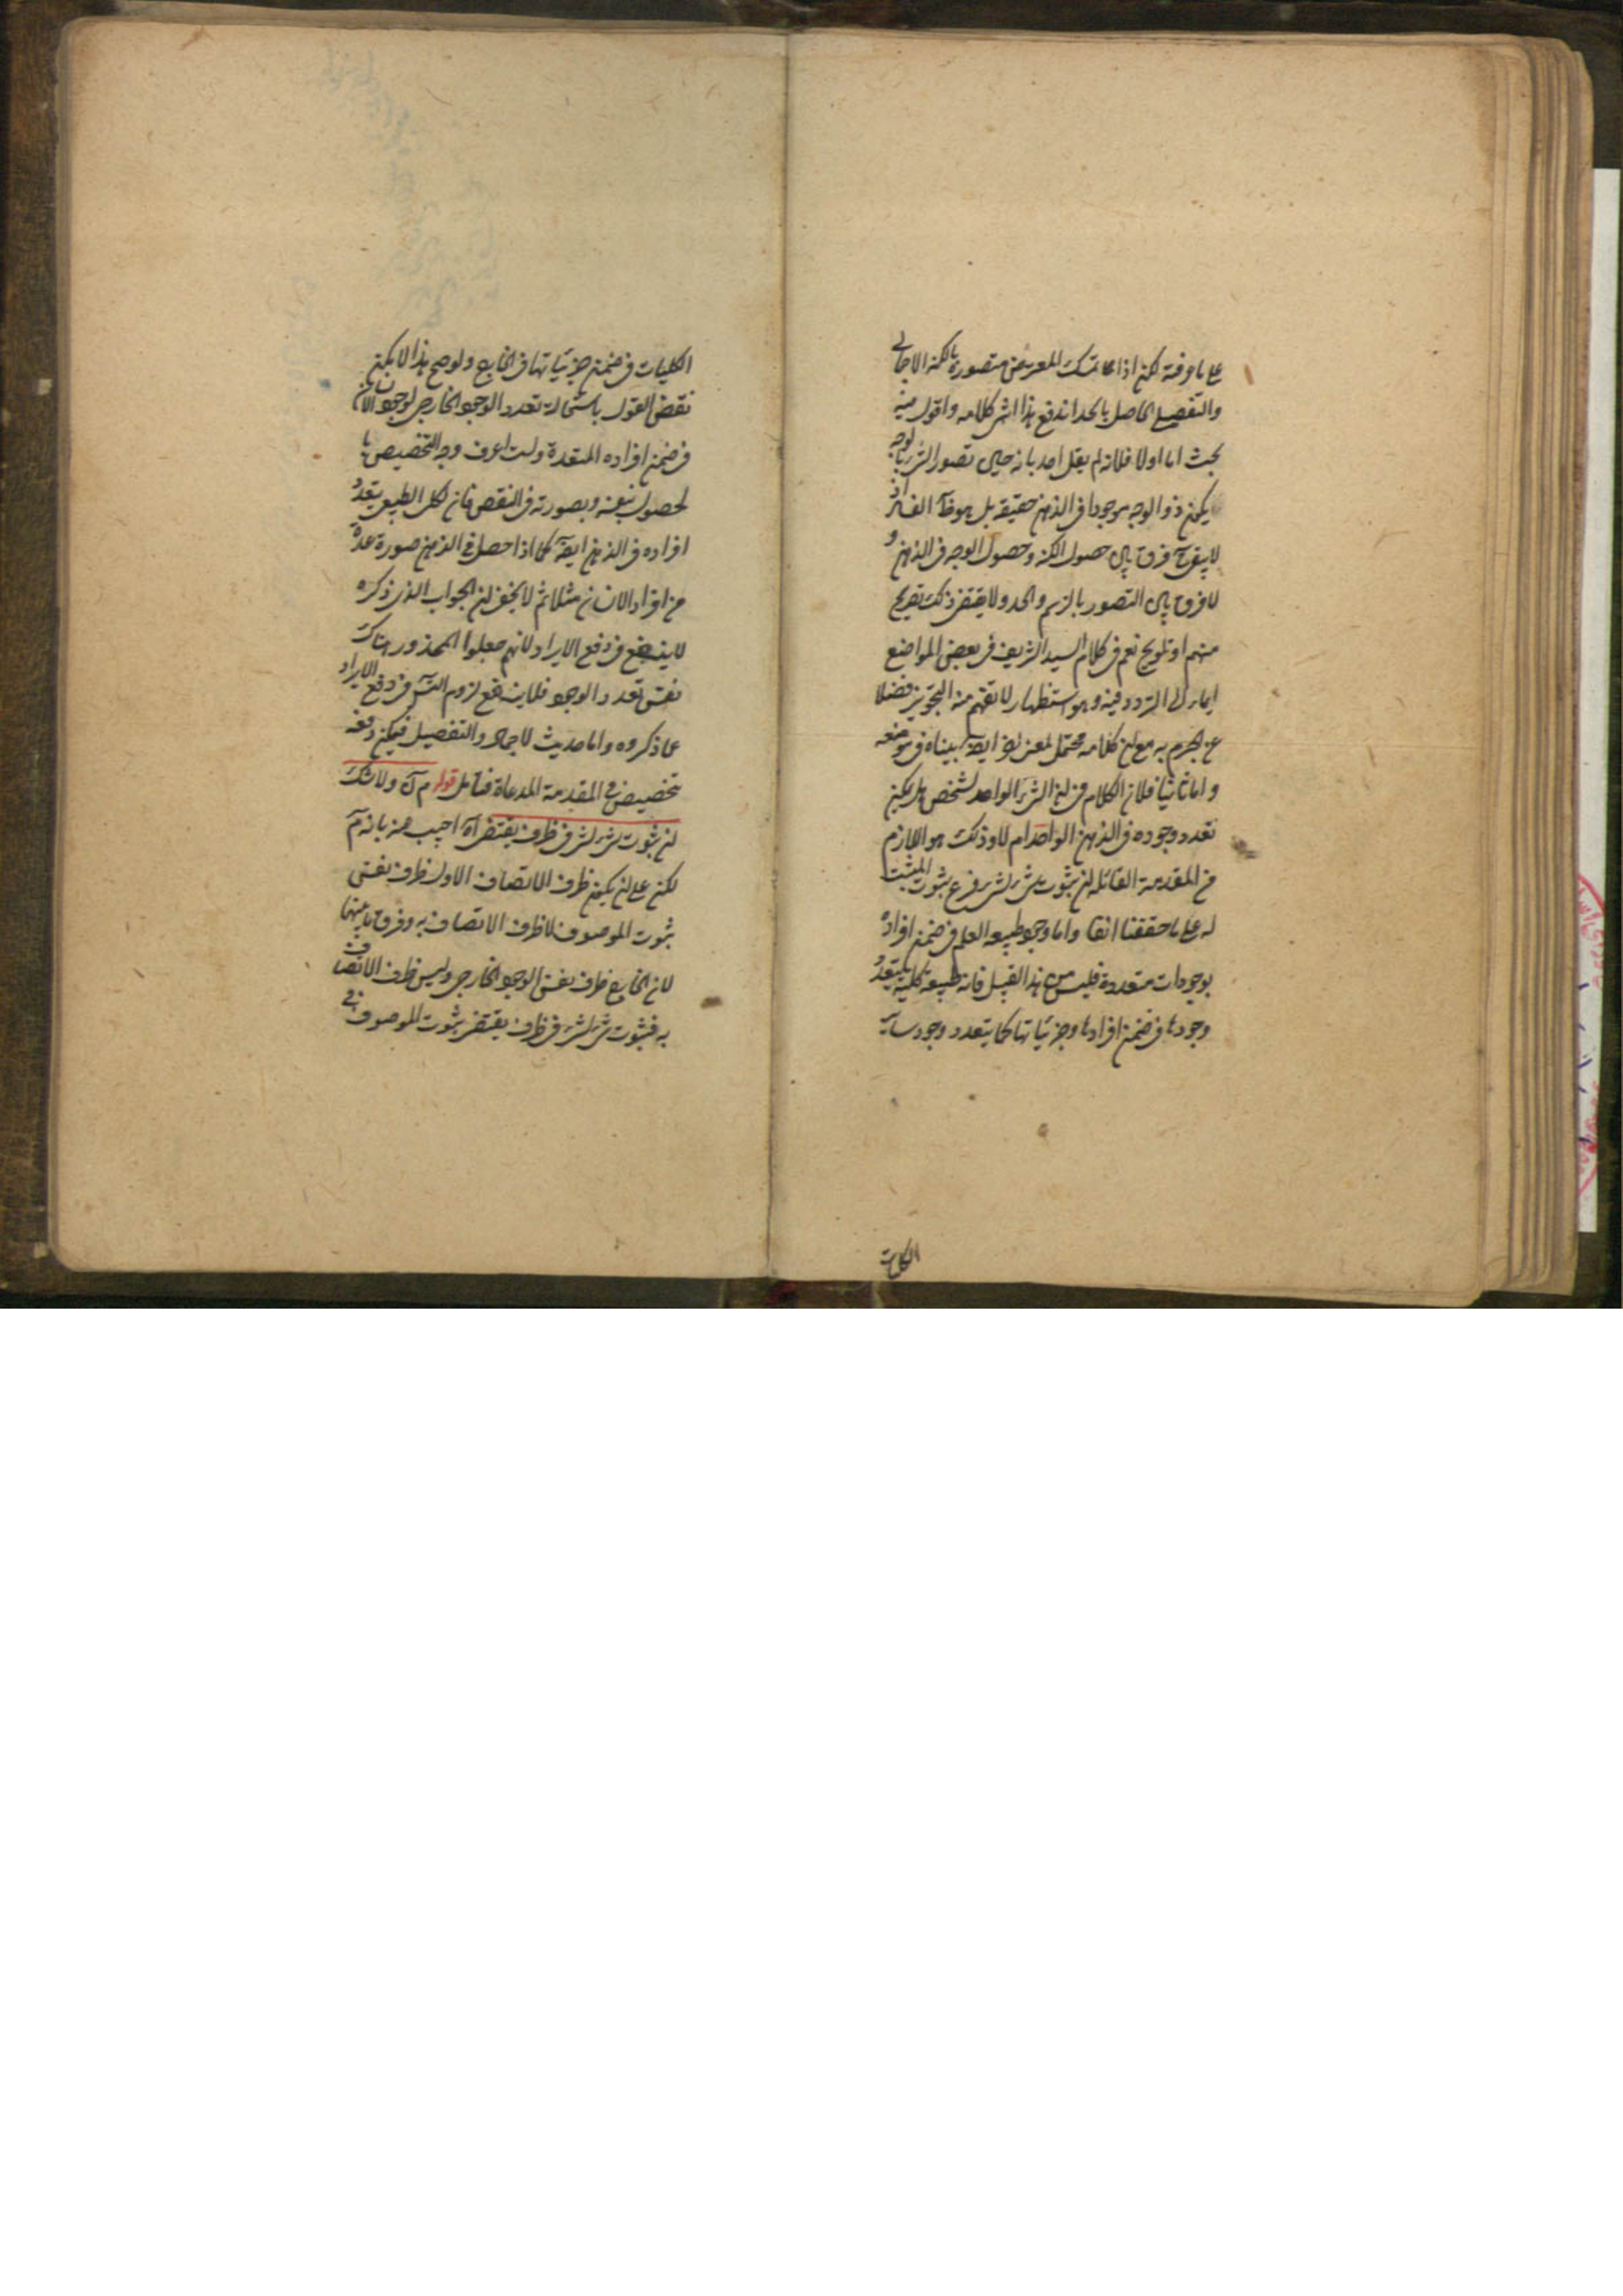 على ما عرفته لكن اذا عاتمسك المعترض متصوره بالكنه الاجمالى
والتفصيل الحاصل بالحد اندفع هذا انتهى كلامه واقول فيه
بحث اما اولا فلانه لم يقل احد بانه حين تصور الشئ بالوجه
يكون ذو الوجه موجودا فى الذهن حقيقة بل هو ظ الفساد اذ
لا يبقى ح فرق بين حصول الكنه وحصول الوجه فى الذهن و
لا فرق بين التصور بالرسم والحد ولا يقتضى ذلك تصريح
منهم او تلويح نعم فى كلام السيد الشريف فى بعض المواضع
ايماء الى التردد فيه وهو استظهار لا تفهم منه التجويز فضلا
عن الجزم به مع ان كلامه محتمل لمعنى اخر ايضا بيناه فى موضعه
واما ثانيا فلان الكلام فى ان الشئ الواحد لشخص هل يمكن
تعدد وجوده فى الذهن الواحد ام لا وذلك هو اللازم
من المقدمة القائلة ان ثبوت شئ لشئ فرع ثبوت المثبت
له على ما حققنا انفا واما وجود طبيعة العلم فى ضمن افراده
بوجودات متعددة فليس من هذا القبيل فانه طبيعة كلية يتعدد
وجودها فى ضمن افرادها وجزئياتها كما يتعدد وجود ساير
الكليات
الكليات فى ضمن جزئياتها فى الخارج ولو صح هذا لا يمكن
نقض القول باستحالة تعدد الوجود الخارجى لوجود الانسان
فى ضمن افراده المتعددة ولست اعرف وجه التخصيص با
لحصول بنفسه وبصورته فى النقض فان الكل الطبيعى يتعدد
افراده فى الذهن ايضا كما اذا حصل فى الذهن صورة عدة
من افراد الانسان مثلا ثم لا يخفى ان الجواب الذى ذكره
لا ينفع فى دفع الايراد لانهم جعلوا المحذور هناك
نفس تعدد الوجود فلا ينفع لزوم التس فى دفع الايراد
عما ذكروه واما حديث الاجمال والتفصيل فيمكن دفعه
بتخصيص فى المقدمة المدعاة فتامل قوله م ك ولا شك
ان ثبوت شئ لشئ فى ظرف يقتضى اه اجيب عنه بانه م
لكن على ان يكون ظرف الاتصاف الاول ظرف نفس
ثبوت الموصوف لا ظرف الاتصاف به وفرق ما بينهما
لان الخارج ظرف نفس الوجود الخارجى وليس ظرف الاتصاف
به فثبوت شئ لشئ فى ظرف يقتضى ثبوت الموصوف فى